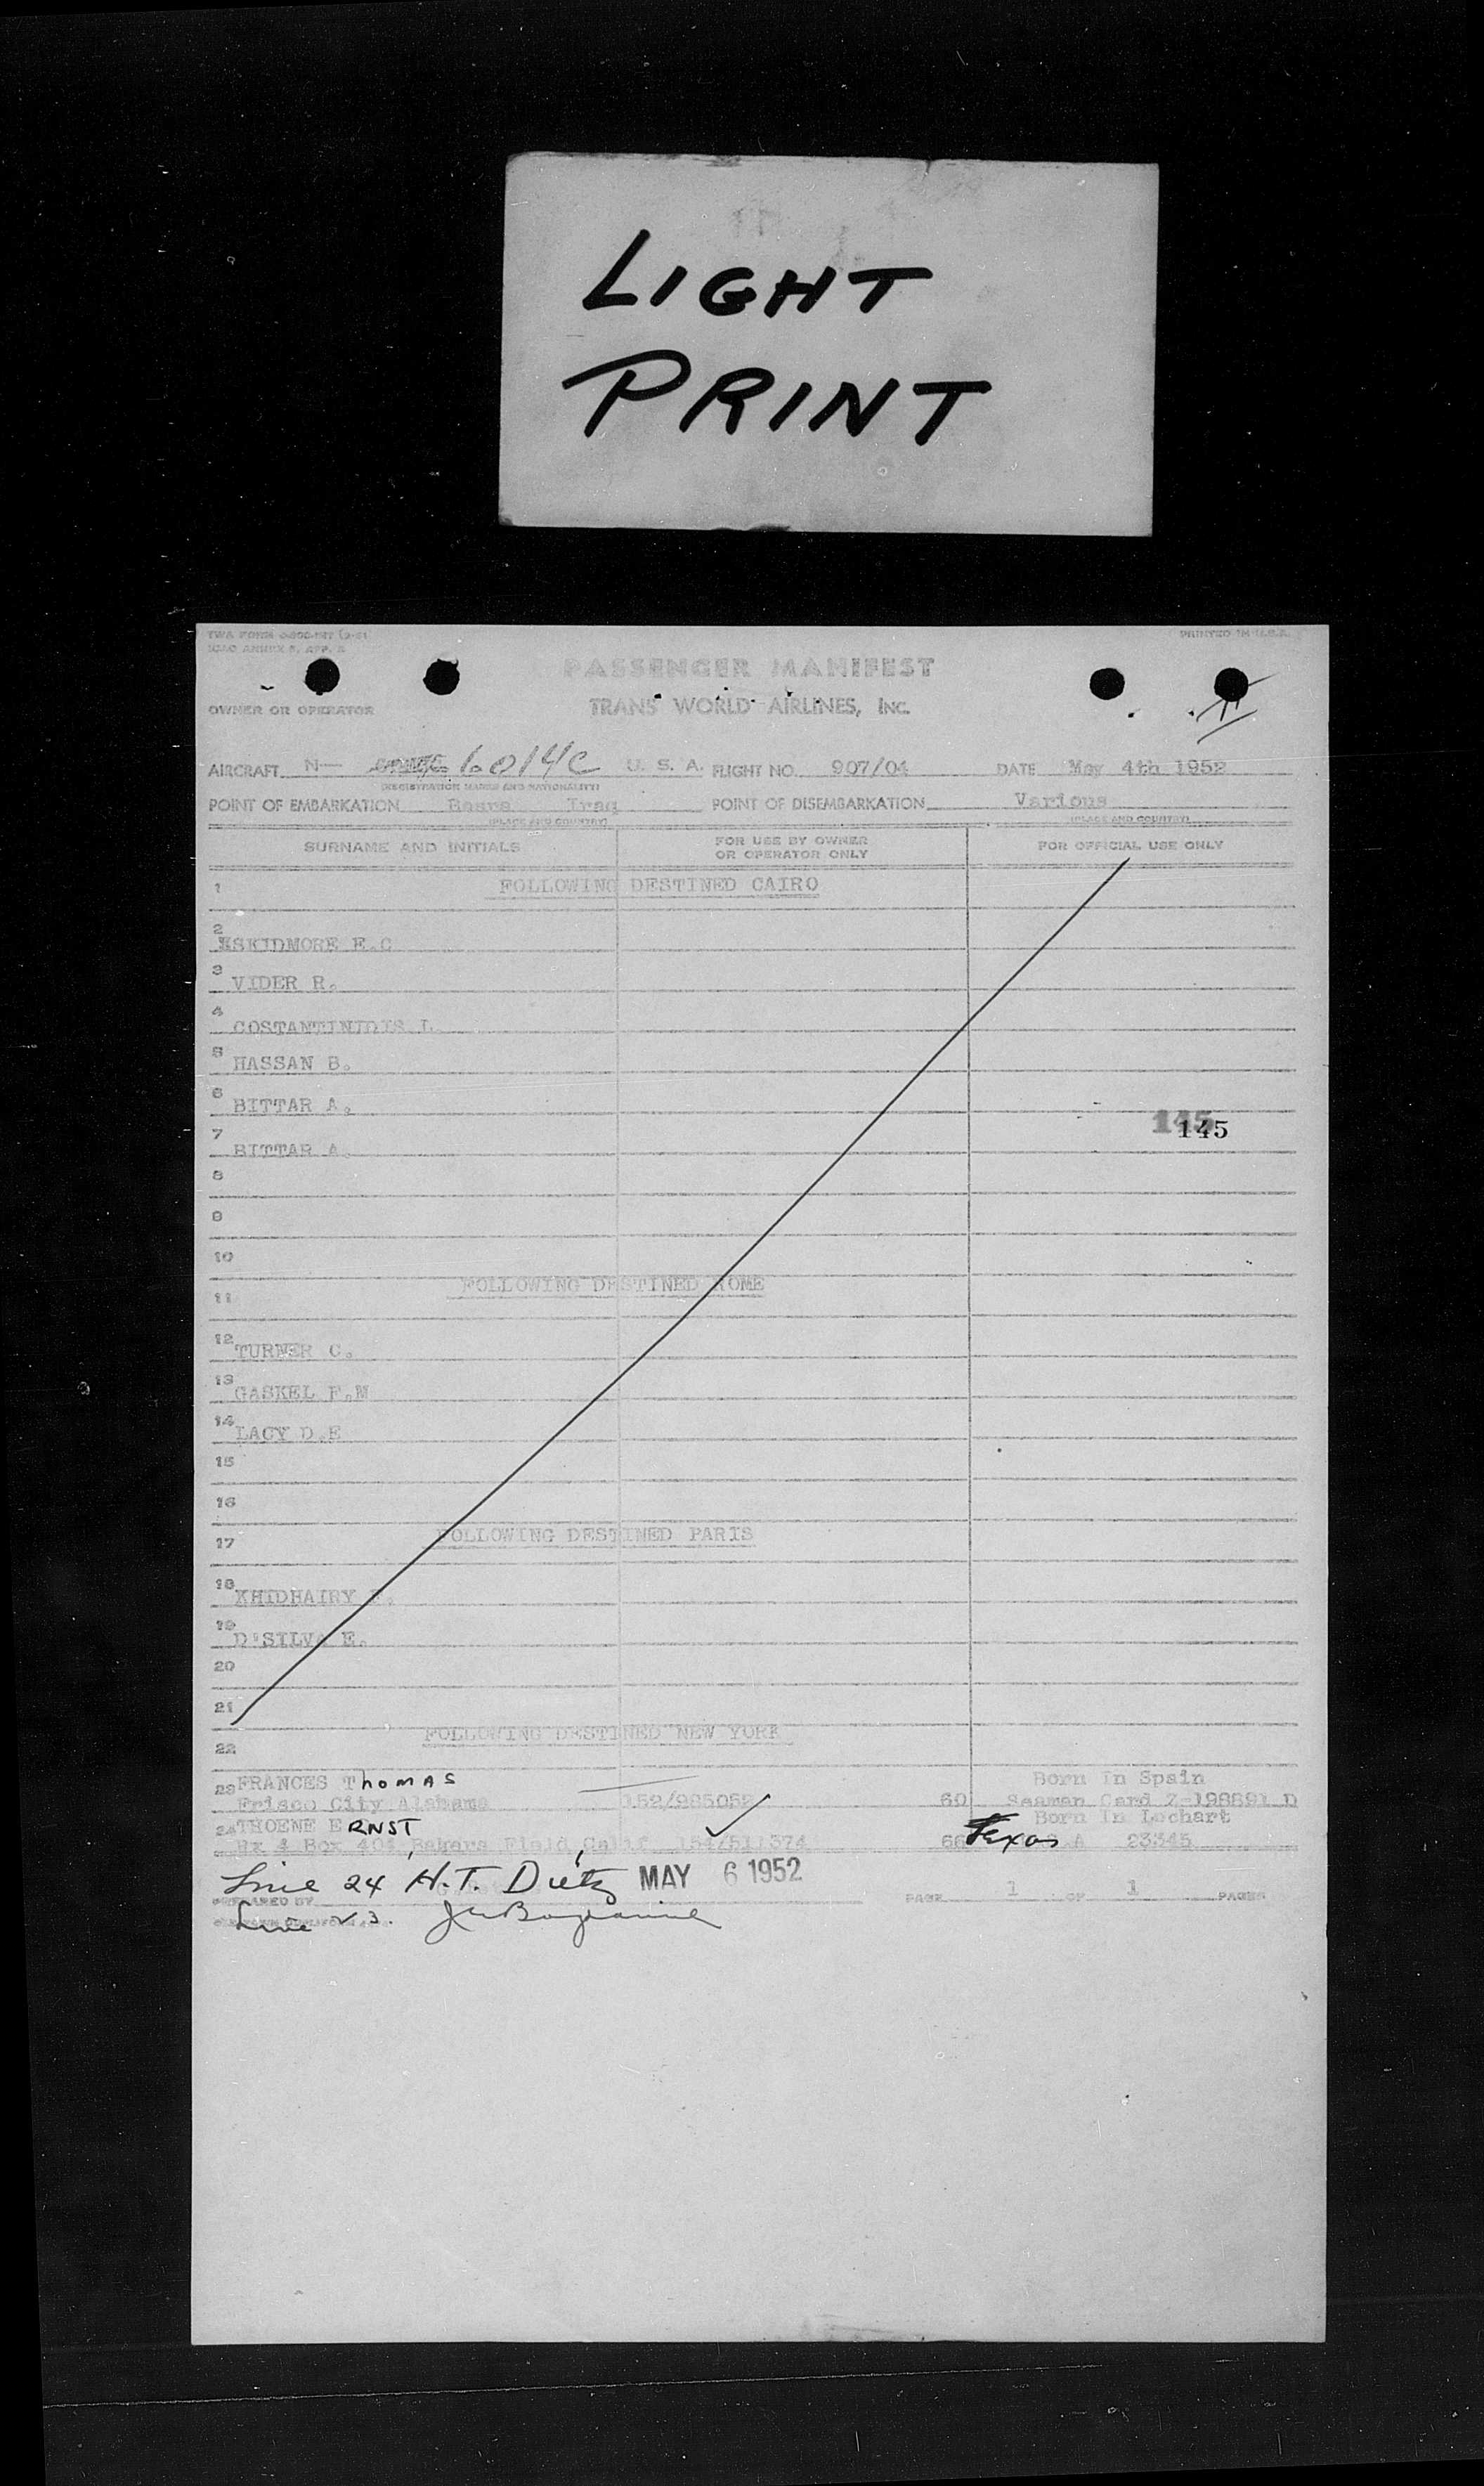 LIGHT
PRINT
PRINTED IN U.S.A.
PASSENGER MANIFEST
TRANS WORLD AIRLINES, INC.
OWNER OR OPERATOR
AIRCRAFT N— 6014C U. S. A. FLIGHT NO. 907/04 DATE May 4th 1952
(REGISTRATION MARKS AND NATIONALITY)
POINT OF EMBARKATION Basra Iraq POINT OF DISEMBARKATION Various
(PLACE AND COUNTRY) (PLACE AND COUNTRY)
SURNAME AND INITIALS FOR USE BY OWNER OR OPERATOR ONLY FOR OFFICIAL USE ONLY
1 FOLLOWING DESTINED CAIRO
2 SKIDMORE E.C
3 VIDER R.
4 COSTANTINIDIS I.
5 HASSAN B.
6 BITTAR A.
145
145
7 BITTAR A.
8
9
10
11 FOLLOWING DESTINED ROME
12 TURNER C.
13 GASKEL F.M
14 LACY D.E
15
16
17 FOLLOWING DESTINED PARIS
18 KHIDHAIRY F.
19 D'SILVA E.
20
21
22 FOLLOWING DESTINED NEW YORK
23 FRANCES Thomas Born In Spain
Frisco City Alabama 152/985052 60 Seaman Card Z-198891 D
24 THOENE ERNST Born In Lochart
Rx 4 Box 404 Bakers Field Calif 154/511374 66 Texas A 23345
Line 24 H.T. Dietz MAY 6 1952
PREPARED BY PAGE 1 OF 1 PAGES
Line 23.